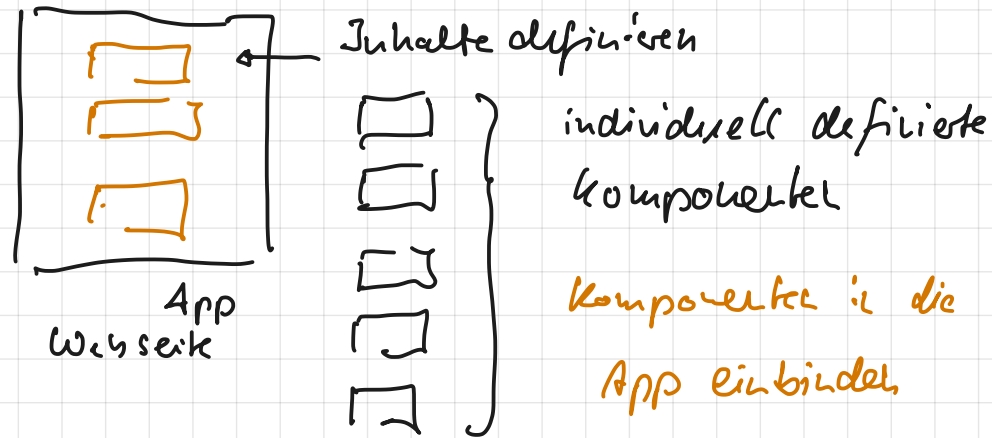 Inhalte definieren
individuell definierte
Komponenten
App
Webseite
Komponenten in die
App einbinden